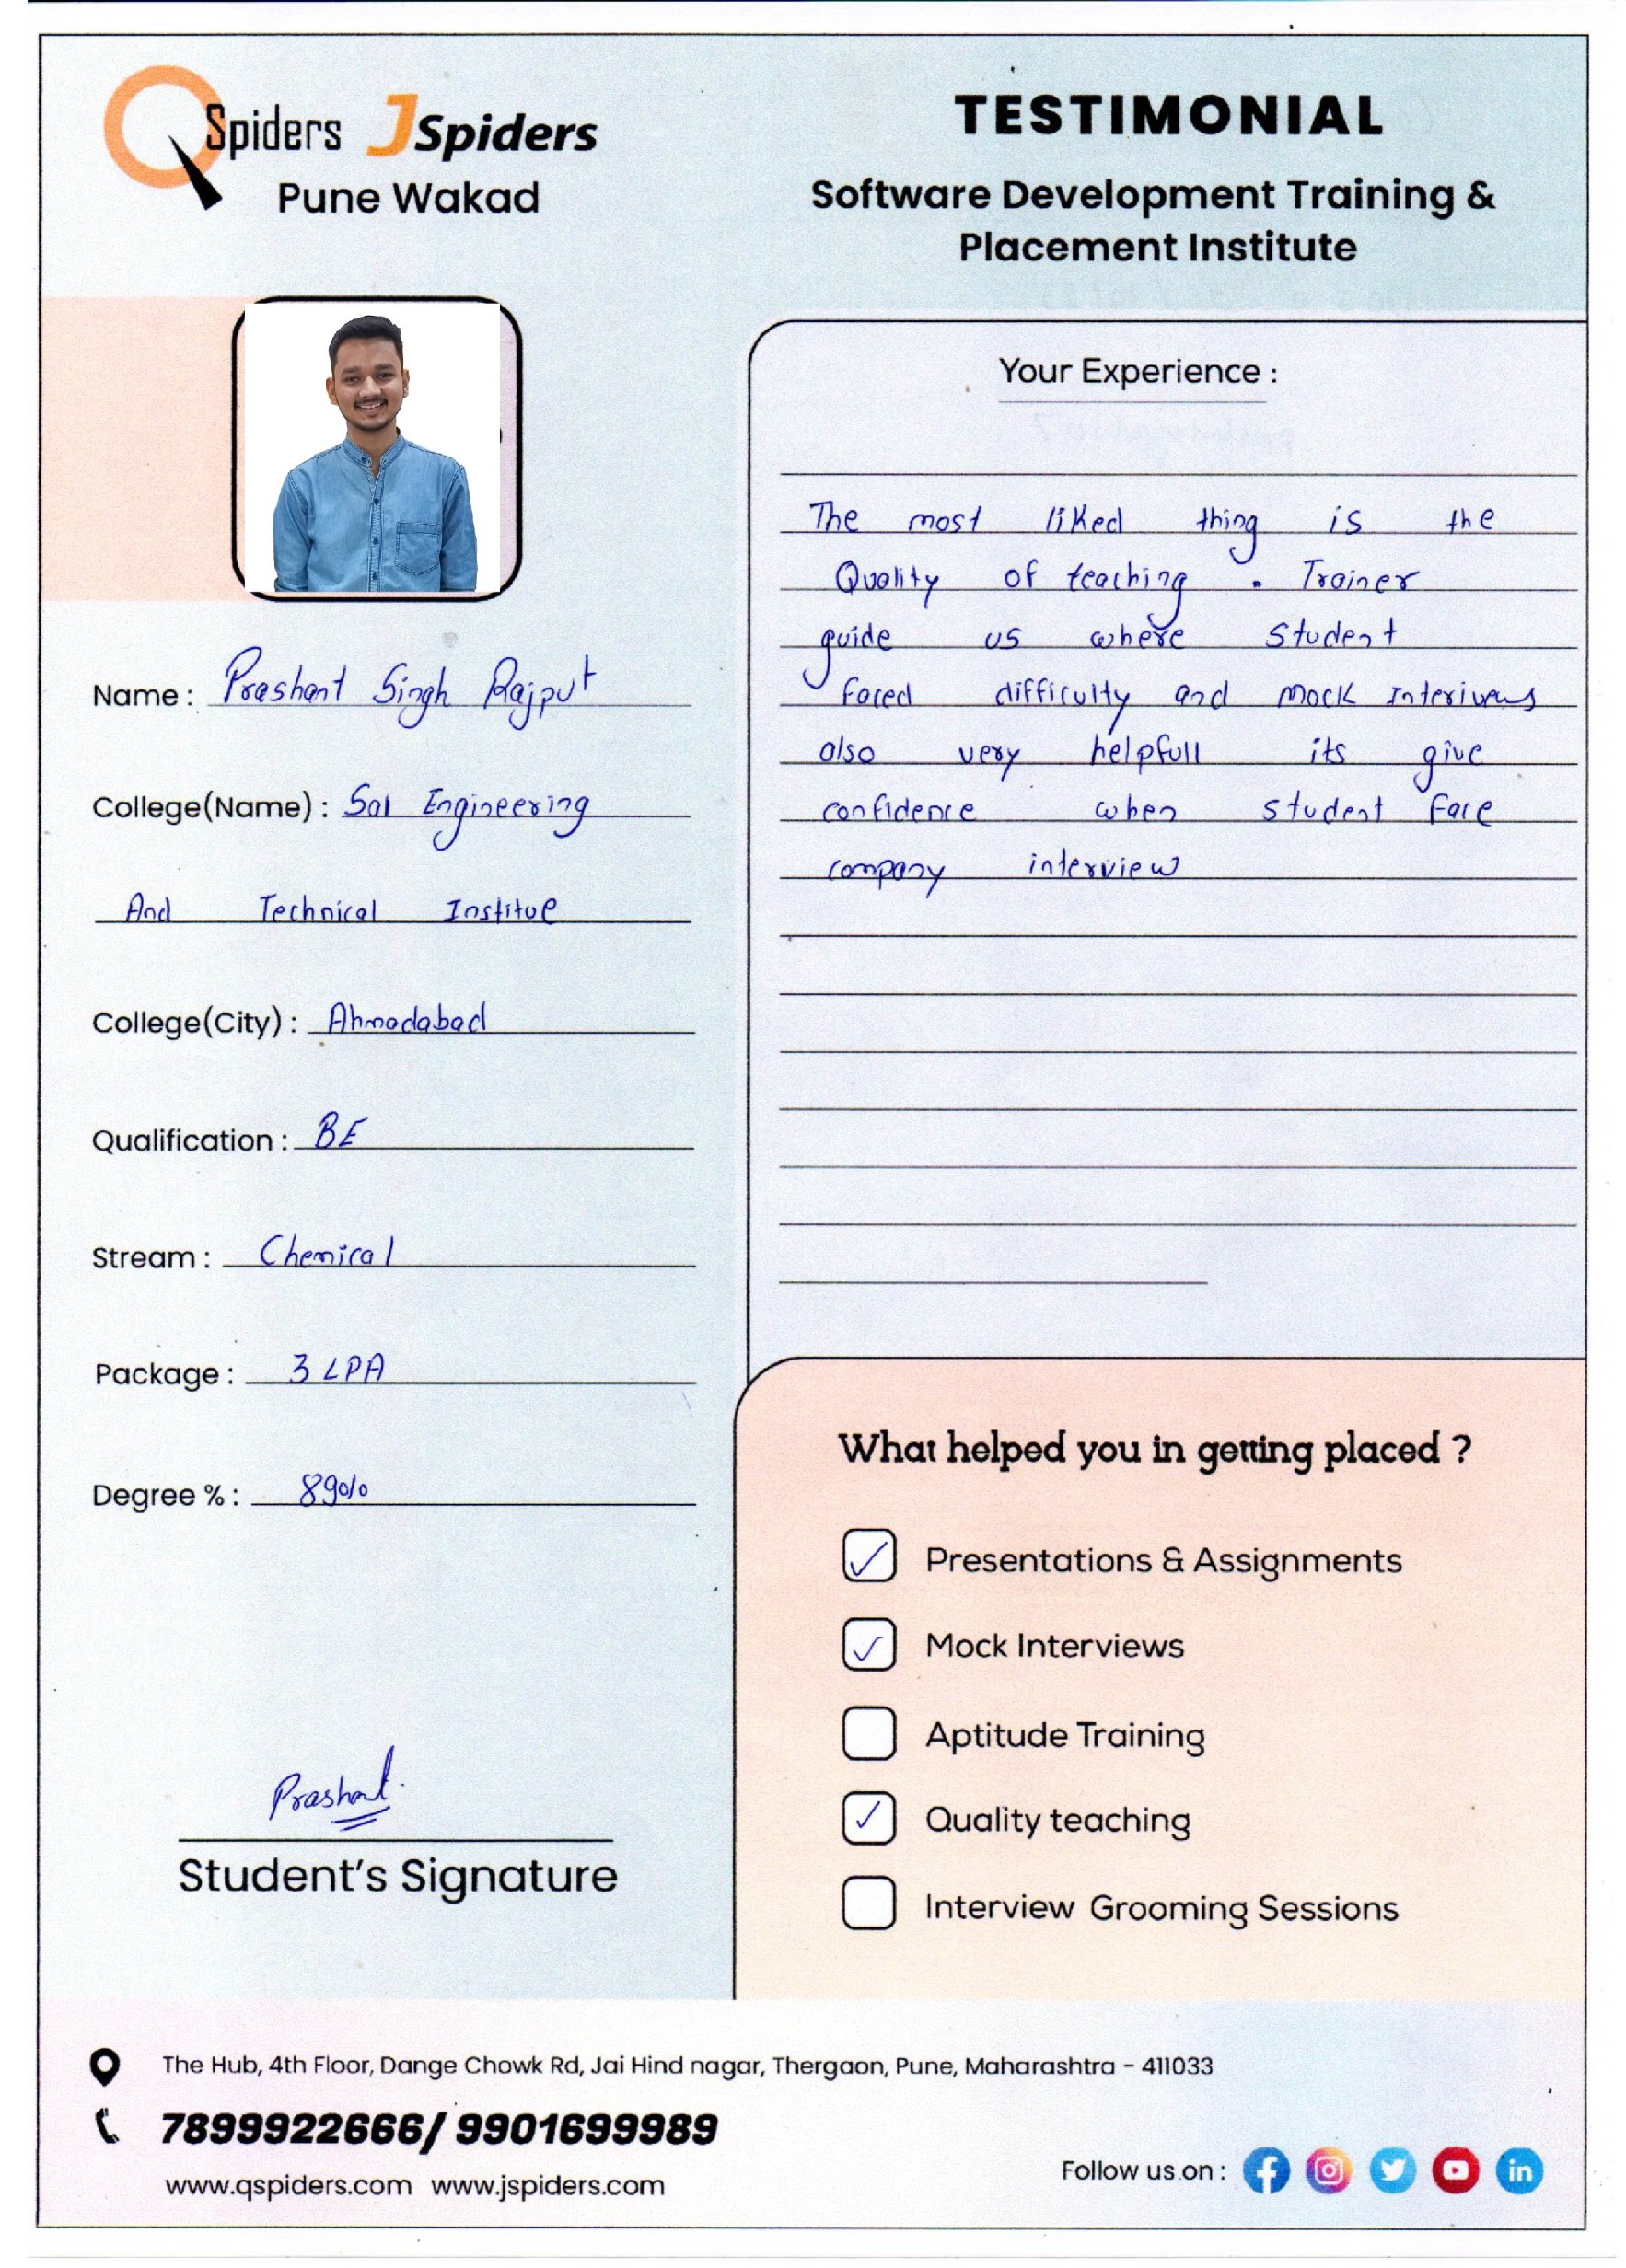 QSpiders JSpiders
Pune Wakad
TESTIMONIAL
Software Development Training &
Placement Institute
Name : Prashant Singh Rajput
College(Name) : Sal Engineering
And Technical Institue
College(City) : Ahmadabad
Qualification : BE
Stream : Chemical
Package : 3 LPA
Degree % : 89%
Prashant.
Student's Signature
Your Experience :
The most liked thing is the
Quality of teaching . Trainer
guide us where student
faced difficulty and mock
also very helpfull its give
confidence when student face
company interview
What helped you in getting placed ?
Presentations & Assignments
Mock Interviews
Aptitude Training
Quality teaching
Interview Grooming Sessions
The Hub, 4th Floor, Dange Chowk Rd, Jai Hind nagar, Thergaon, Pune, Maharashtra - 411033
7899922666/ 9901699989
www.qspiders.com www.jspiders.com
Follow us on :